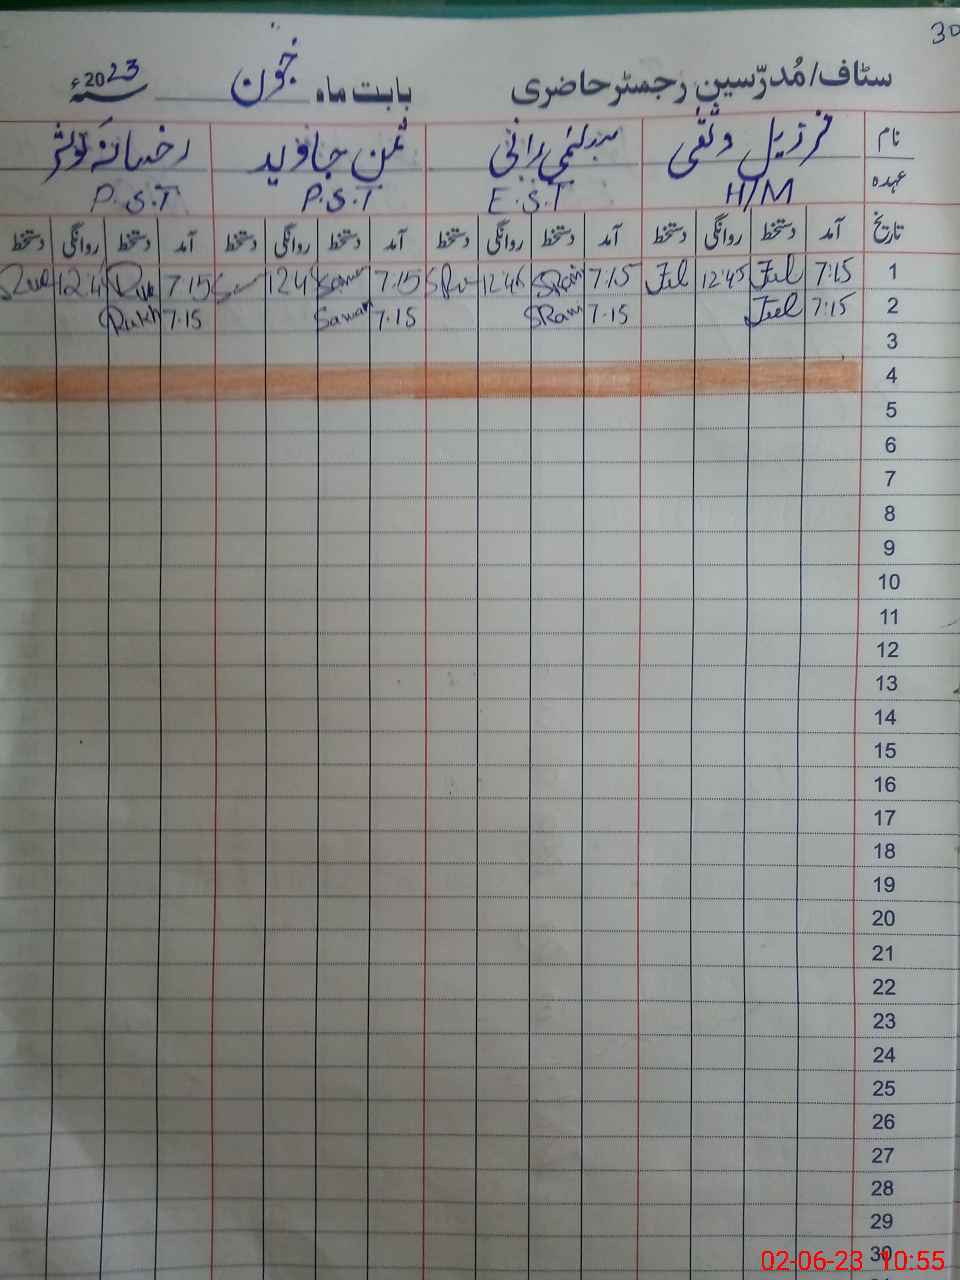 30
سٹاف/مُدرّسین رجسٹر حاضری بابت ماہ جون سنہ 2023ء
نام فرزیل وثقی سلمی رانی ثمن جاوید رخسانہ کوثر
عہدہ H/M E.S.T P.S.T P.S.T
تاریخ آمد دستخط روانگی دستخط آمد دستخط روانگی دستخط آمد دستخط روانگی دستخط آمد دستخط روانگی دستخط
1 7:15 12:45 7:15 12:45 7:15 124 7:15 12:4
2 7:15 7.15 SRani 7.15 Saman 7.15 Rukh
3
4
5
6
7
8
9
10
11
12
13
14
15
16
17
18
19
20
21
22
23
24
25
26
27
28
29
30
02-06-23 10:55